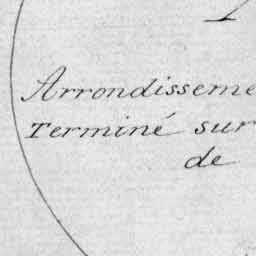 Arrondisseme
Terminé sur
de